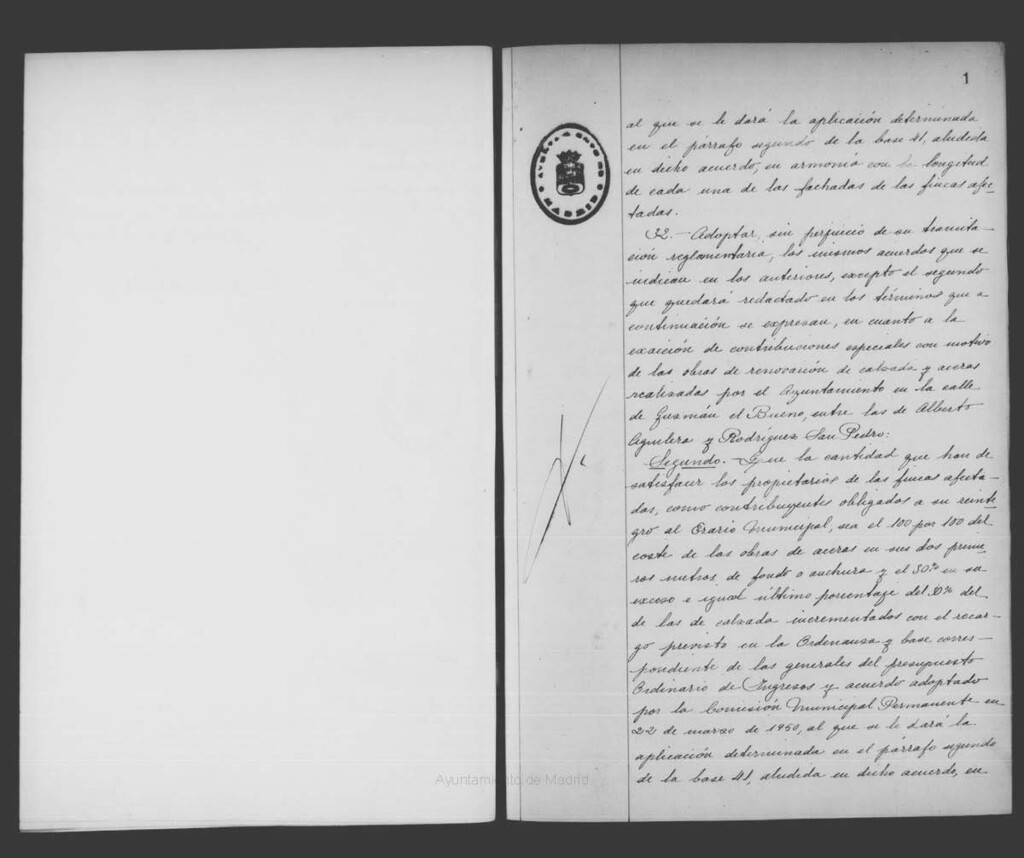 1
AYUNTAMIENTO DE MADRID
al que se le dará la aplicación determinada
en el párrafo segundo de la base 41, aludida
en dicho acuerdo, en armonía con la longitud
de cada una de las fachadas de las fincas afec-
tadas.
32.- Adoptar, sin perjuicio de su tramita-
ción reglamentaria, los mismos acuerdos que se
indican en los anteriores, excepto el segundo
que quedará redactado en los términos que a
continuación se expresan, en cuanto a la
exacción de contribuciones especiales con motivo
de las obras de renovación de calzada y aceras
realizadas por el Ayuntamiento en la calle
de Guzmán el Bueno, entre las de Alberto
Aguilera y Rodríguez San Pedro:
Segundo.- Que la cantidad que han de
satisfacer los propietarios de las fincas afecta-
das, como contribuyentes obligados a su reinte-
gro al Erario Municipal, sea el 100 por 100 del
coste de las obras de aceras en sus dos prime-
ros metros de fondo o anchura y el 50% en su
exceso e igual último porcentaje del 50% del
de las de calzada incrementados con el recar-
go previsto en la Ordenanza y base corres-
pondiente de las generales del presupuesto
Ordinario de Ingresos y acuerdo adoptado
por la Comisión Municipal Permanente en
22 de marzo de 1950, al que se le dará la
aplicación determinada en el párrafo segundo
de la base 41, aludida en dicho acuerdo, en
Ayuntamiento de Madrid